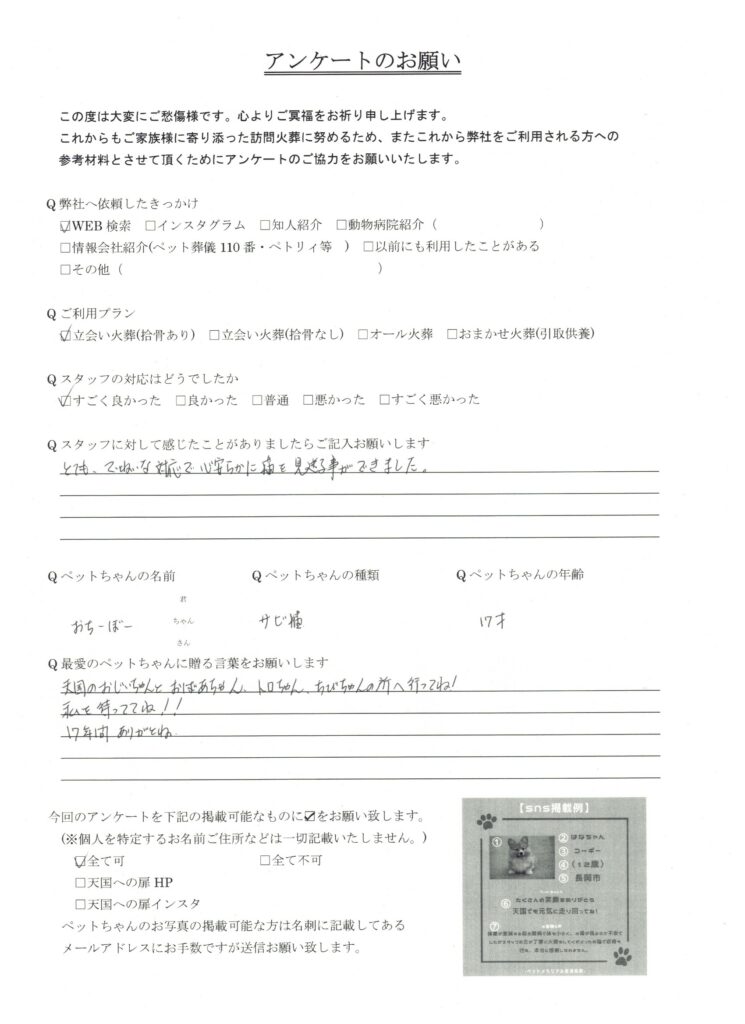 アンケートのお願い
この度は大変にご愁傷様です。心よりご冥福をお祈り申し上げます。
これからもご家族様に寄り添った訪問火葬に努めるため、またこれから弊社をご利用される方への
参考材料とさせて頂くためにアンケートのご協力をお願いいたします。
Q 弊社へ依頼したきっかけ
☑WEB 検索 □インスタグラム □知人紹介 □動物病院紹介（ ）
□情報会社紹介(ペット葬儀 110 番・ペトリィ等 ) □以前にも利用したことがある
□その他（ ）
Q ご利用プラン
☑立会い火葬(拾骨あり) □立会い火葬(拾骨なし) □オール火葬 □おまかせ火葬(引取供養)
Q スタッフの対応はどうでしたか
☑すごく良かった □良かった □普通 □悪かった □すごく悪かった
Q スタッフに対して感じたことがありましたらご記入お願いします
とても、ていねいな対応で心安らかに猫を見送る事ができました。
Q ペットちゃんの名前 Q ペットちゃんの種類 Q ペットちゃんの年齢
君
おちーぼー ちゃん サビ猫 17才
さん
Q 最愛のペットちゃんに贈る言葉をお願いします
天国のおじいちゃんとおばあちゃん、トロちゃん、ちびちゃんの所へ行ってね!
私を待っててね!!
17年間ありがとね
今回のアンケートを下記の掲載可能なものに☑をお願い致します。
(※個人を特定するお名前ご住所などは一切記載いたしません。)
☑全て可 □全て不可
□天国への扉 HP
□天国への扉インスタ
ペットちゃんのお写真の掲載可能な方は名刺に記載してある
メールアドレスにお手数ですが送信お願い致します。
【sns掲載例】
① ② はなちゃん
③ コーギー
④ （12歳）
⑤ 長岡市
⑥ たくさんの笑顔をありがとう
天国でも元気に走り回ってね!
⑦